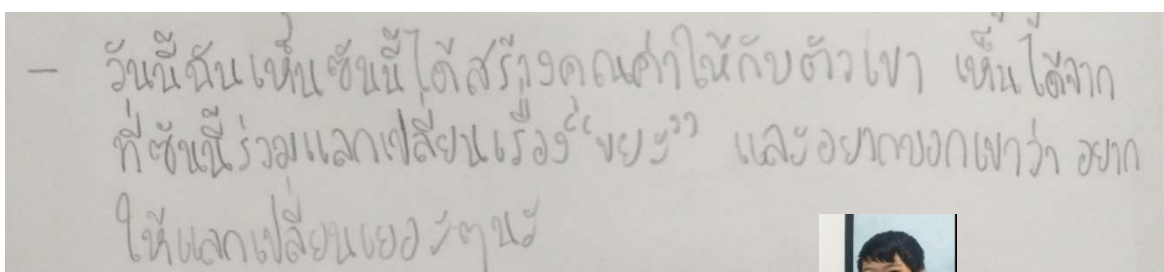 - วันนี้ฉันเห็นซันนี้ได้สร้างคุณค่าให้กับตัวเขา เห็นได้จาก
ที่ซันนี้ร่วมแลกเปลี่ยนเรื่อง “ขยะ” และอยากบอกเขาว่า อยาก
ให้แลกเปลี่ยนเยอะๆนะ